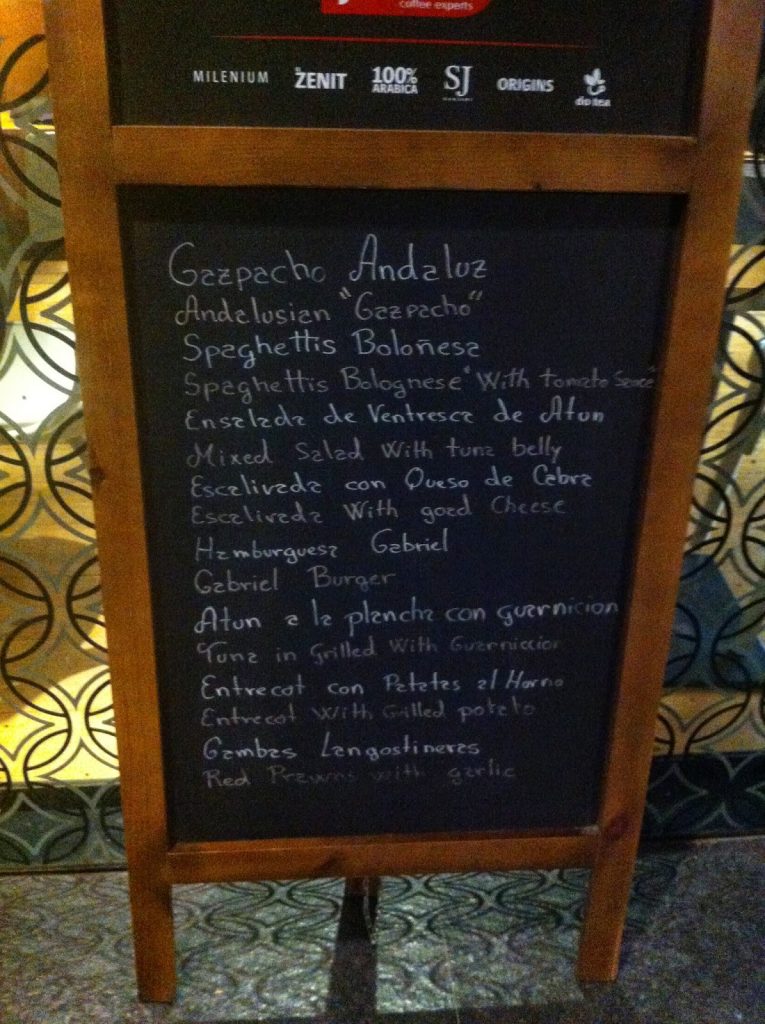 coffee experts
MILENIUM ZENIT 100% ARABICA SJ ORIGINS dotea
Gazpacho Andaluz
Andalusian "Gazpacho"
Spaghettis Boloñesa
Spaghettis Bolognese "With tomato Sauce"
Ensalada de Ventresca de Atun
Mixed Salad With tuna belly
Escalivada con Queso de Cabra
Escalivada With goad Cheese
Hamburguesa Gabriel
Gabriel Burger
Atun a la plancha con guarnicion
Tuna in Grilled With Guarniccion
Entrecot con Patatas al Horno
Entrecot With Grilled potato
Gambas Langostineras
Red Prawns with garlic